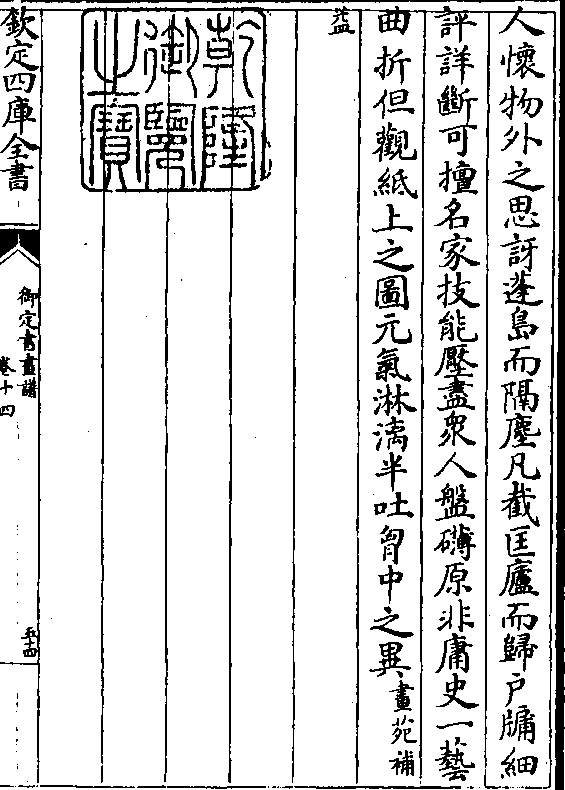 人懷物外之思訝蓬島而隔塵凡截匡廬而歸户牗細
評詳斷可擅名家技能壓盡衆人盤礴原非庸史一藝
曲折但觀紙上之圖元氣淋漓半吐胷中之異畫苑補
益
乾隆御覽之寶
欽定四庫全書
御定書畫譜
卷十四
五十四